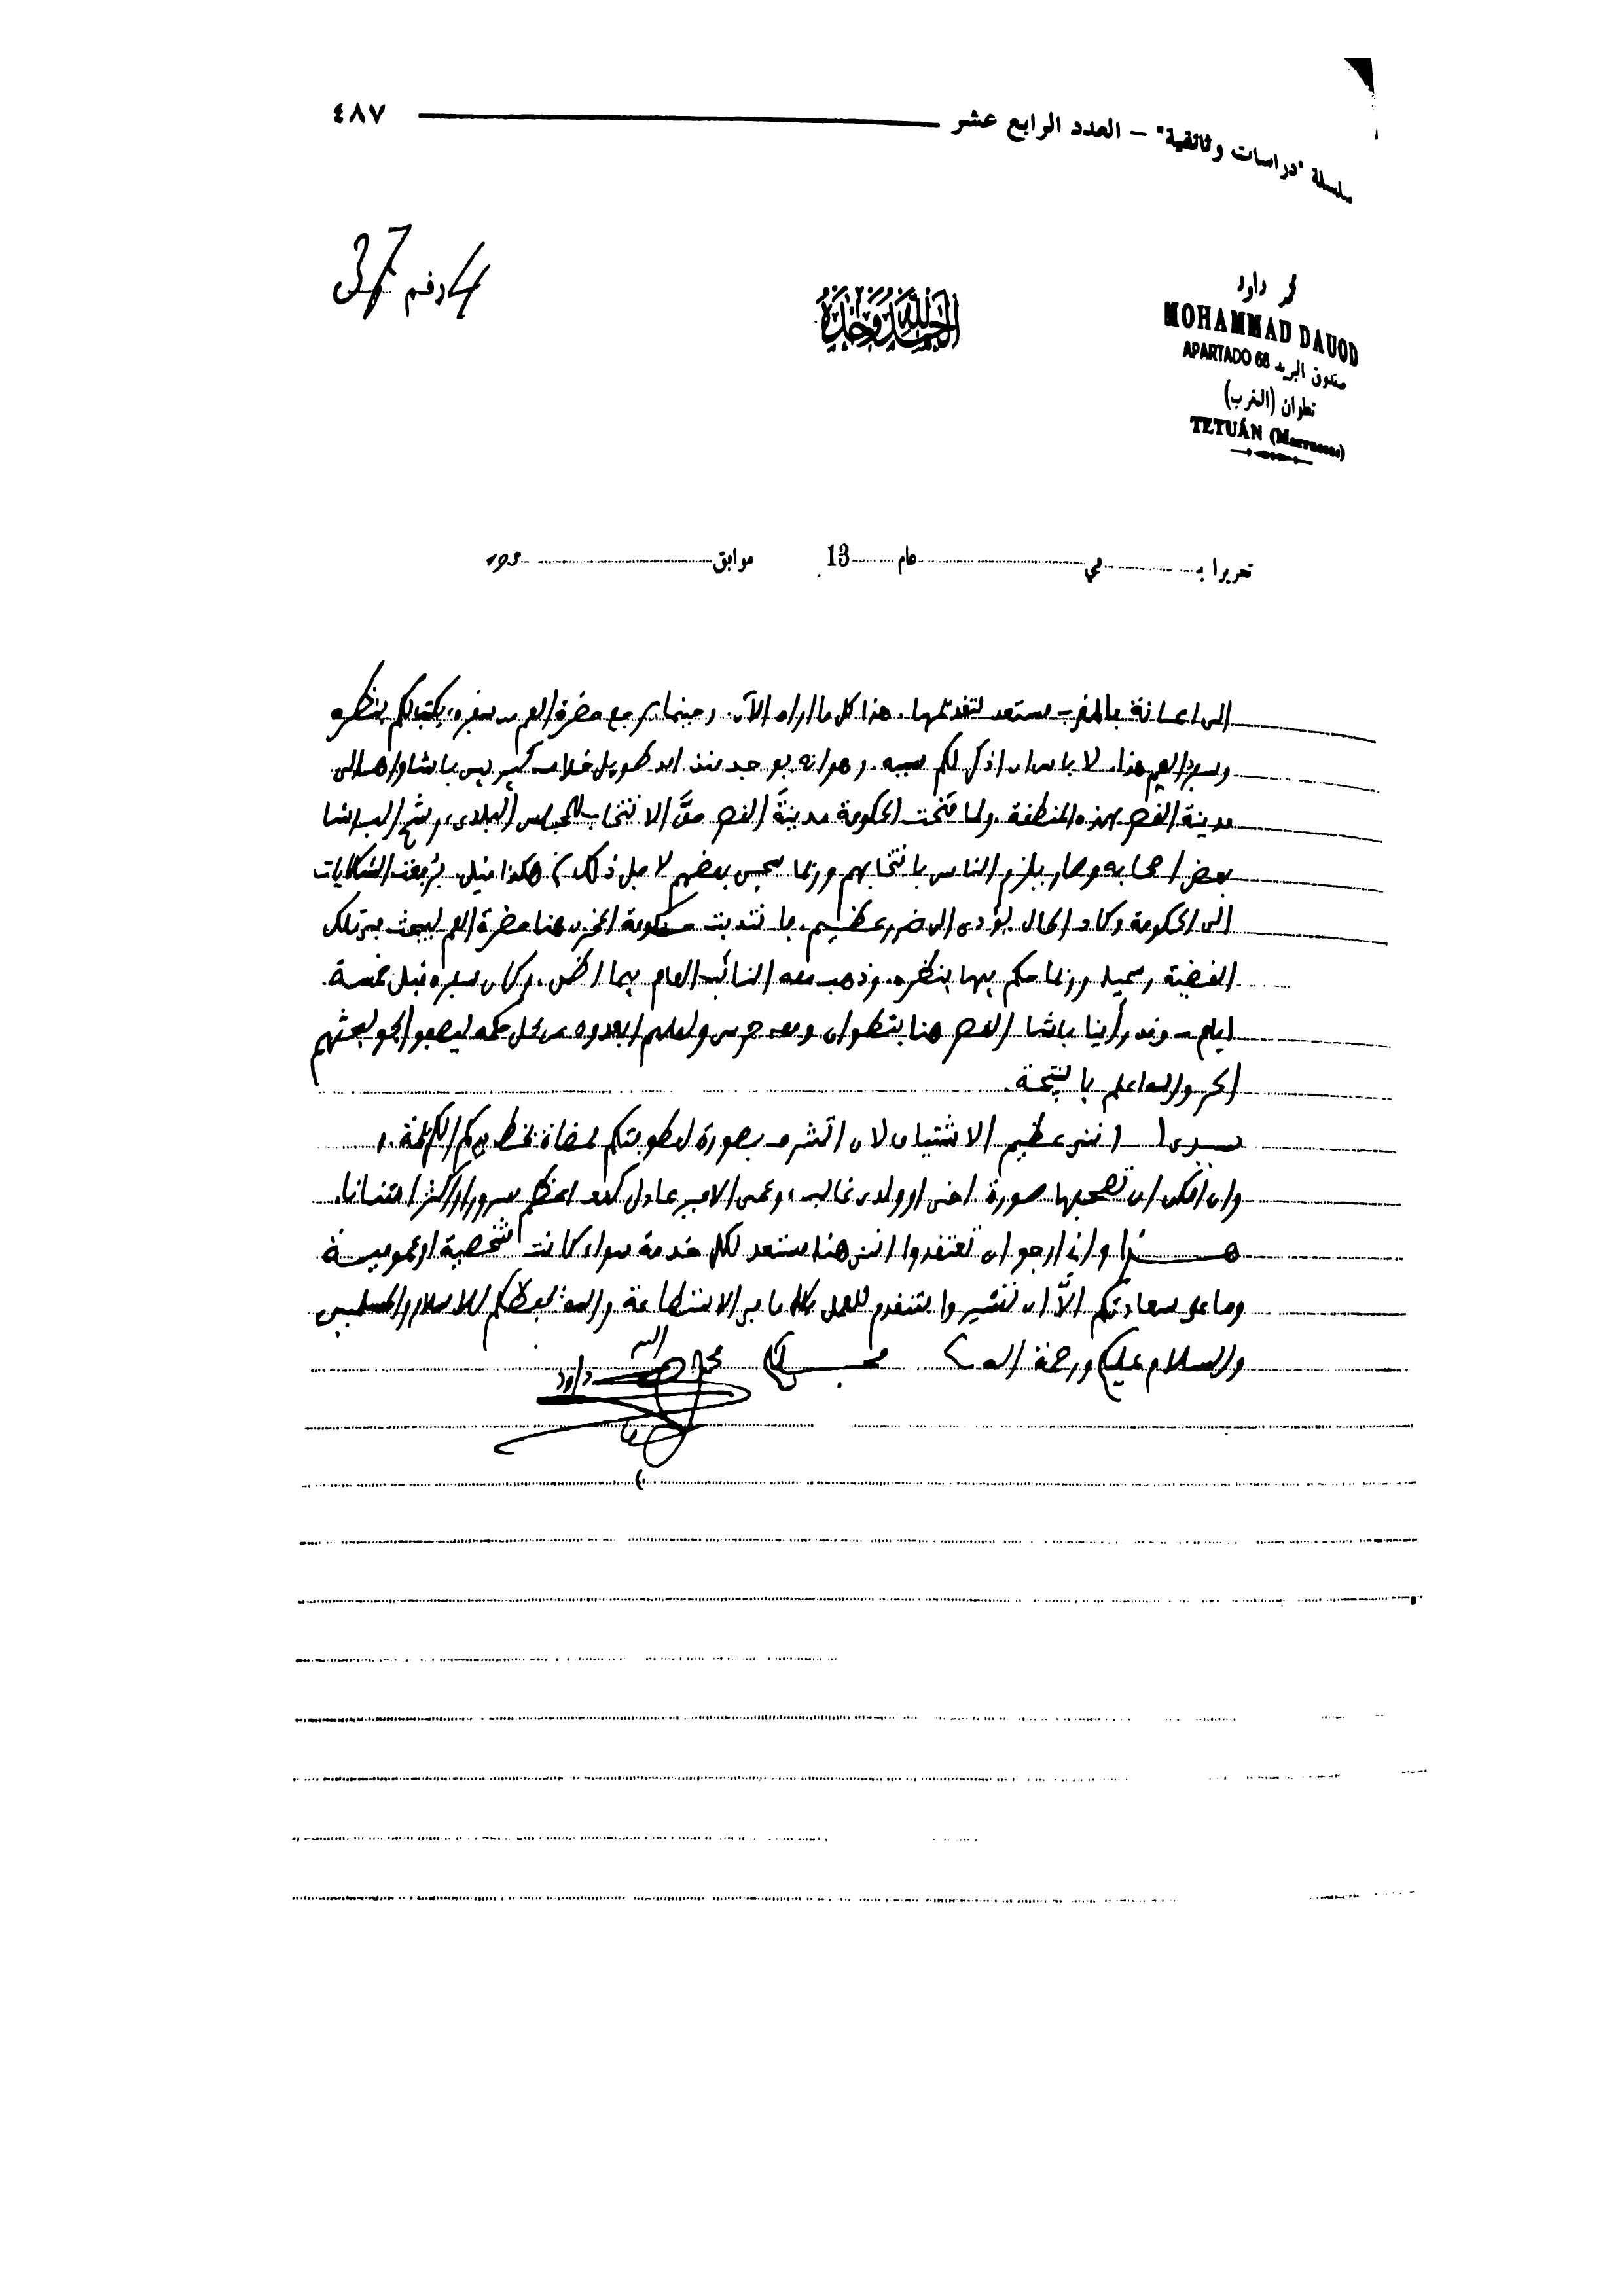 سلسلة "دراسات وثائقية" – العدد الرابع عشر ٤٨٧
4 رقم 37
الحمد لله وحده
محمد داود
MOHAMMAD DAUOD
APARTADO 66 صندوق البريد
تطوان (المغرب)
TETUÁN (Marruecos)
تحريرا بـ في عام 13 موافق 193
الى اعانة بالمغرب مستعد لتقديمها. هذا كل ما اراه الآن. وحينما يرجع حضرة العم من سفره، يكتب لكم بنظره
وسفر العم هذا، لا باس ان اذكر لكم سببه. وهو انه يوجد منذ امد طويل خلاف كبير بين باشا واهالى
مدينة القصر بهذه المنطقة. ولما منحت الحكومة مدينةَ القصر حقَّ الانتخاب للمجلس البلدى، رشح الباشا
بعض اصحابه وصار يلزم الناس بانتخابهم وربما سجن بعضهم لاجل ذلك (هكذا قيل) فرفعت الشكايات
الى الحكومة وكاد الحال يؤدى الى ضرر عظيم. فانتدبت حكومة المخزن هنا حضرة العم ليبحث في تلك
القضية رسميا وربما حكم فيها بنظره. وذهب معه النائب العام فيما اظن. وكان سفره قبل خمسة
ايام – وقد رأينا باشا القصر هنا بتطوان ومعه حرس ولعلهم ابعدوه عن محل حكمه ليصفو الجو لبحثهم
الحر والله اعلم بالنتيجة.
سيدى! اننى عظيم الاشتياق لان اتشرف بصورة لعطوفتكم ممضاة بخط يدكم الكريمة،
وان امكن ان تصحبها صورة اخى او ولدى غالب، وعمى الامير عادل كنت اعظم سرورا واكثر امتنانا.
هـذا وانى ارجو ان تعتقدوا اننى هنا مستعد لكل خدمة سواء كانت شخصية او عمومية
وما على سعادتكم الاَّ ان تشيروا فنتقدم للعمل بكل ما فى الاستطاعة والله يحفظكم للاسلام والمسلمين
والسلام عليكم ورحمة الله محبكم محمد داود